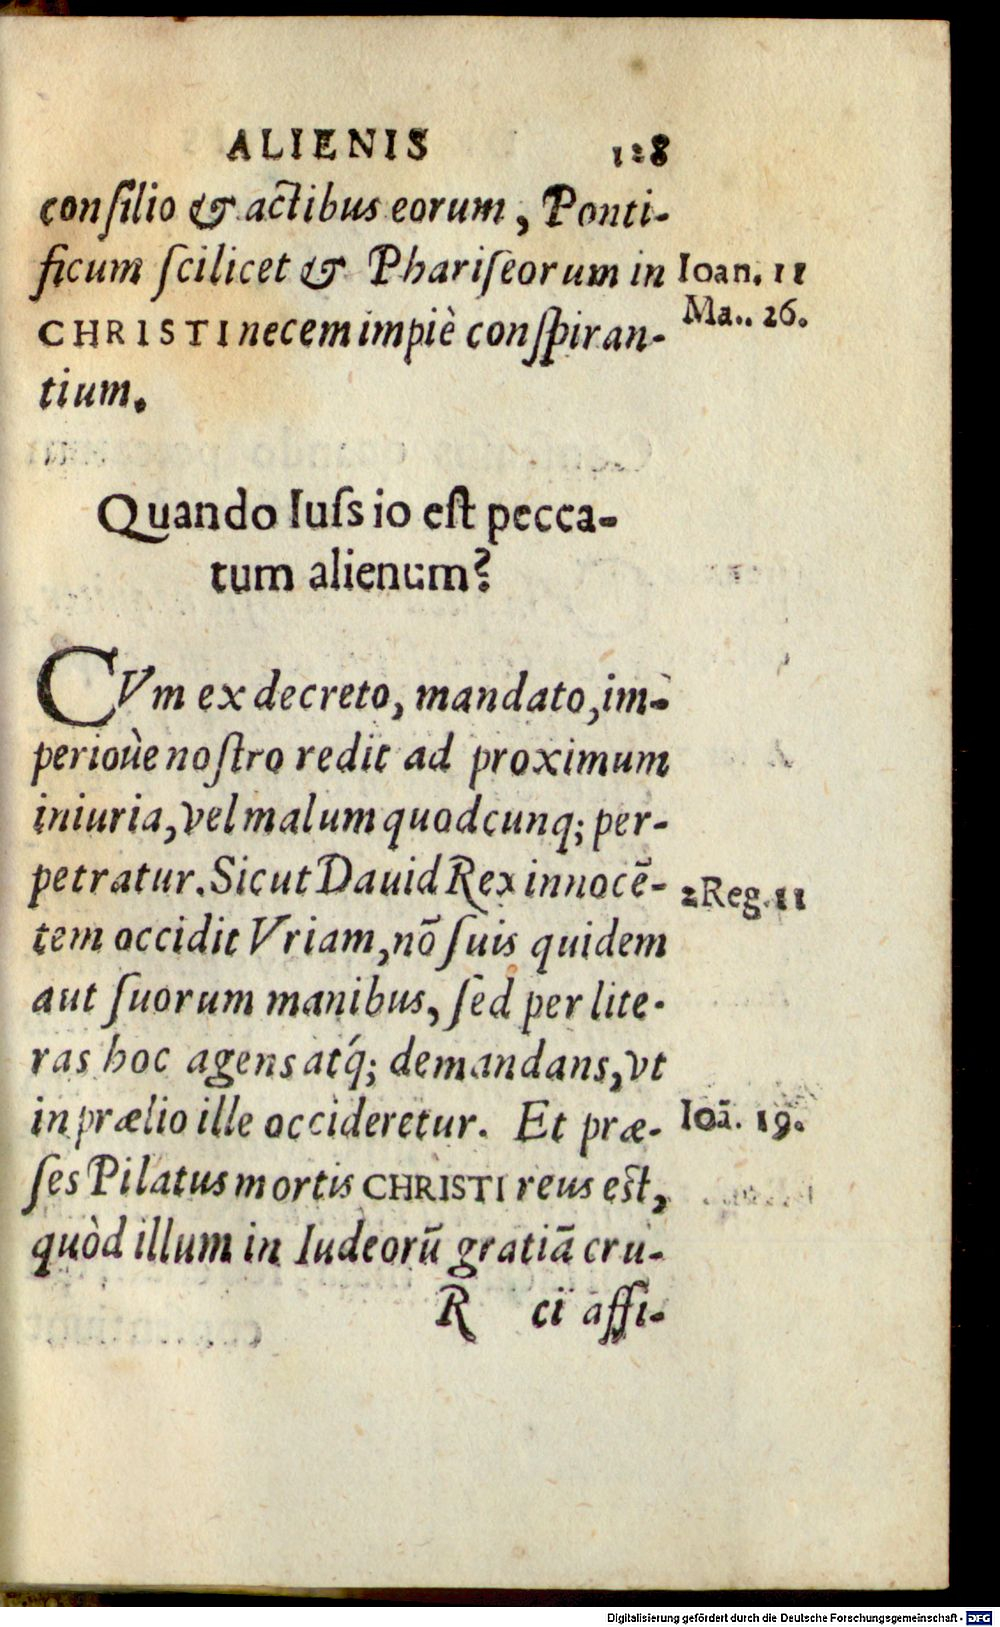 ALIENIS 128
conſilio & actibus eorum, Ponti-
ficum ſcilicet & Phariſeorum in
Ioan. 11
CHRISTI necem impiè conſpiran-
Ma.. 26.
tium.
Quando Iuſsio eſt pecca-
tum alienum?
CVm ex decreto, mandato, im-
perioùe noſtro redit ad proximum
iniuria, vel malum quodcunq; per-
petratur. Sicut Dauid Rex innocē-
2 Reg. 11
tem occidit Vriam, nō ſuis quidem
aut ſuorum manibus, ſed per lite-
ras hoc agens atq́; demandans, vt
in prælio ille occideretur. Et præ-
Ioā. 19.
ſes Pilatus mortis CHRISTI reus eſt,
quòd illum in Iudeorū gratiā cru-
R ci affi-
Digitalisierung gefördert durch die Deutsche Forschungsgemeinschaft - DFG